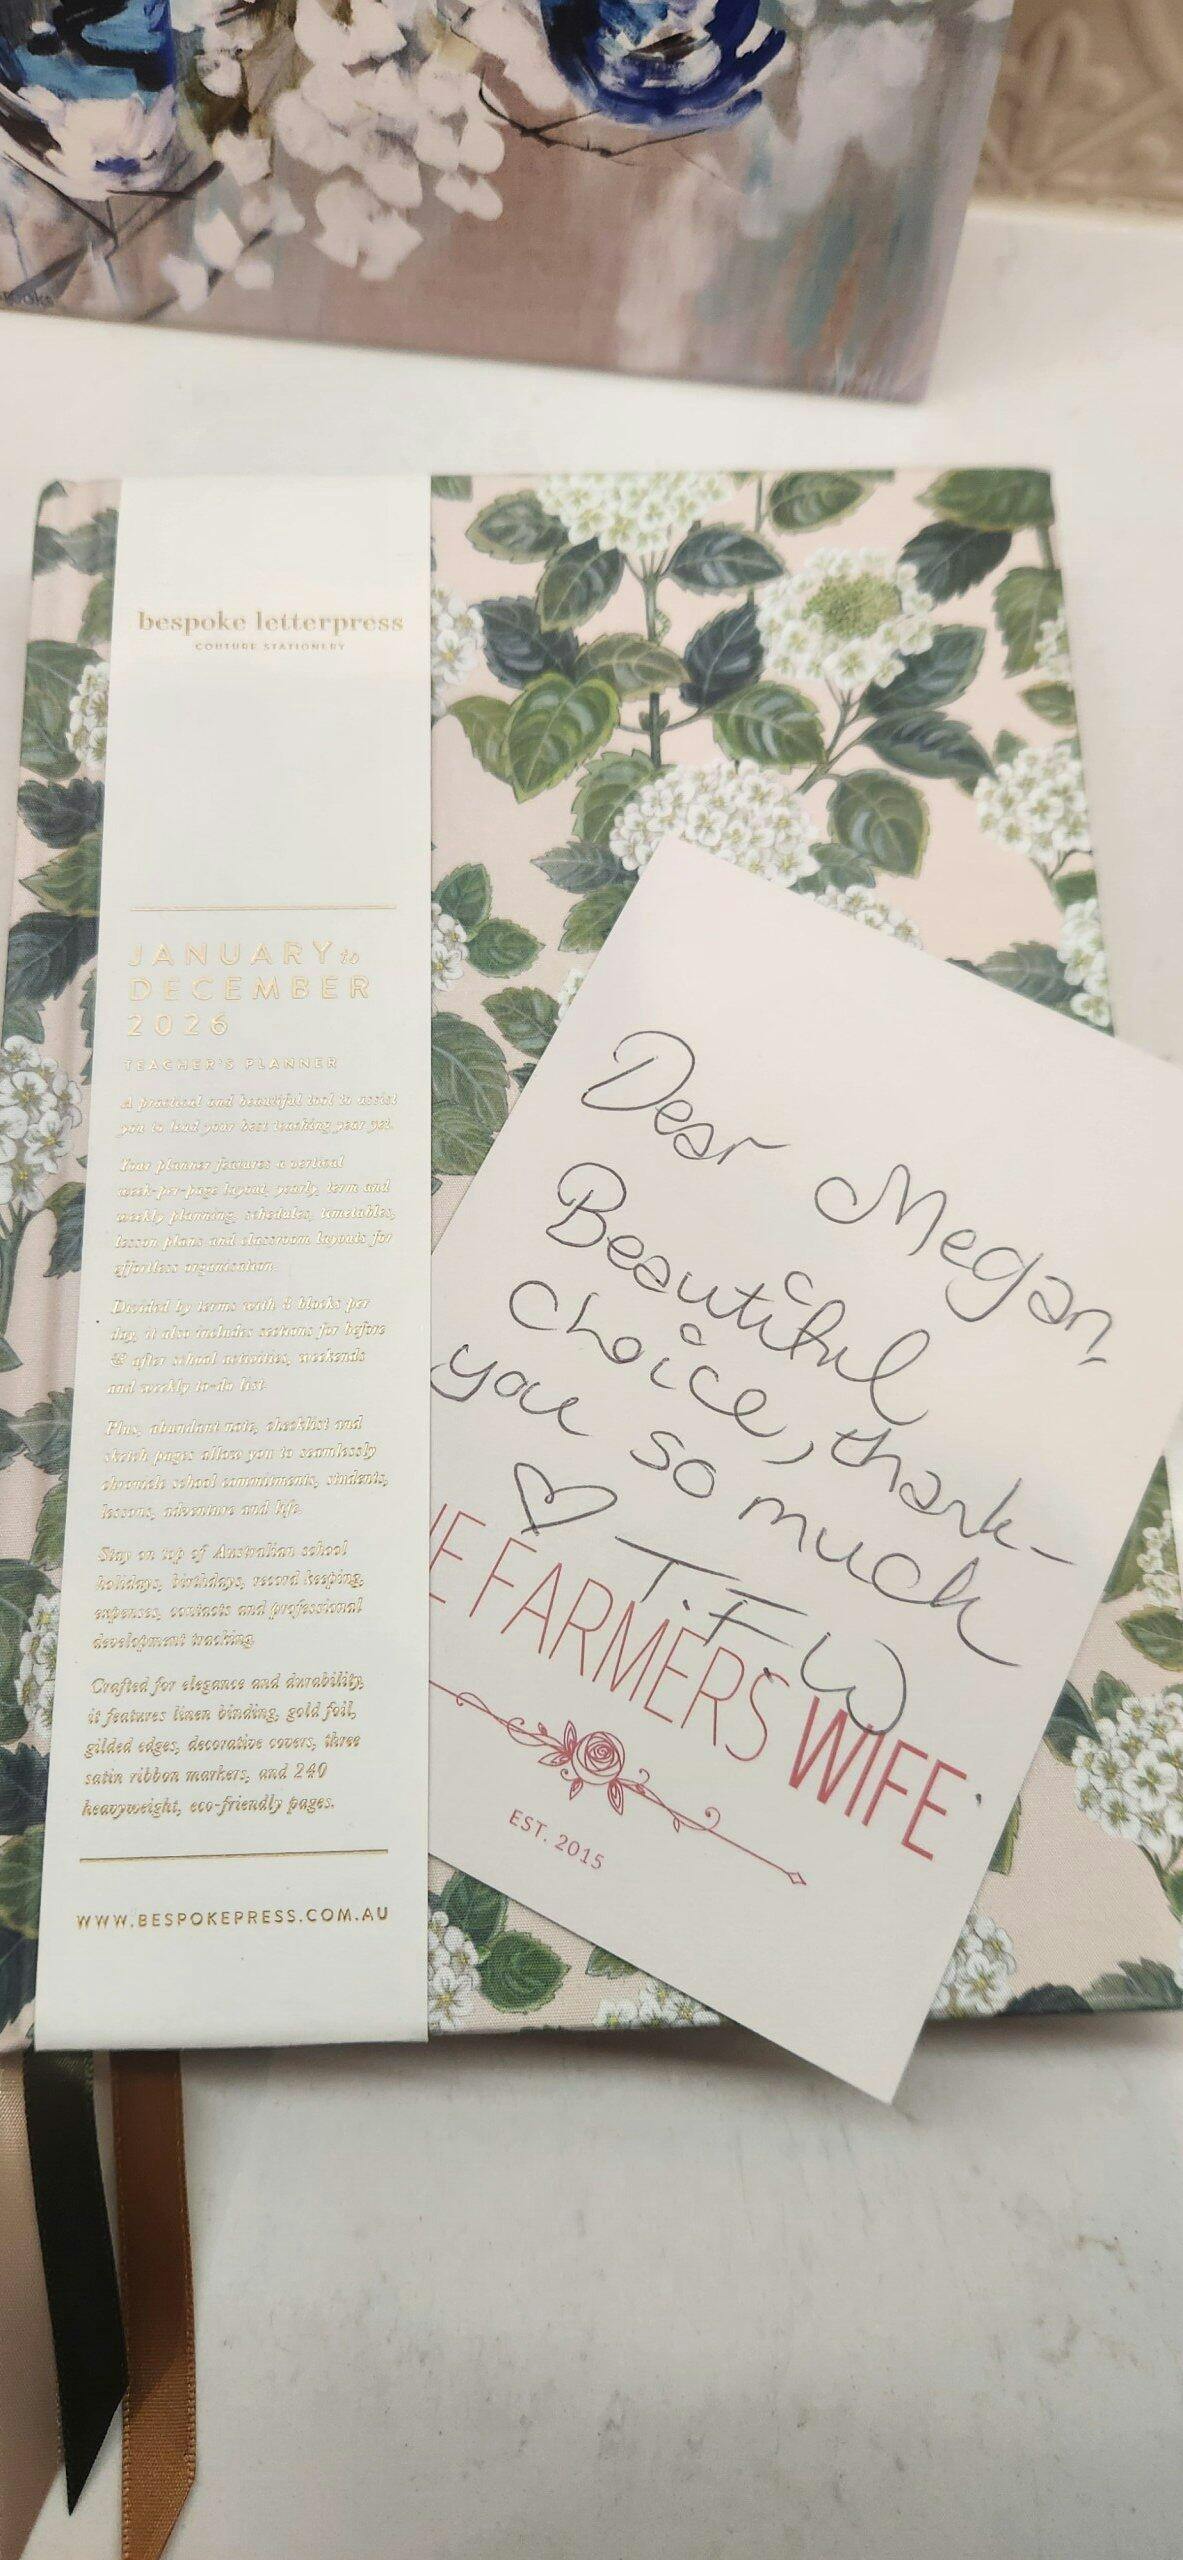 bespoke letterpress
COUTURE STATIONERY
JANUARY to
DECEMBER
2026
TEACHER'S PLANNER
A practical and beautiful tool to assist
you to lead your best teaching year yet.
Your planner features a vertical
week-per-page layout, yearly, term and
weekly planning, schedules, timetables,
lesson plans and classroom layouts for
effortless organisation.
Divided by terms with 8 blocks per
day, it also includes sections for before
& after school activities, weekends
and weekly to-do list.
Plus, abundant note, checklist and
sketch pages allow you to seamlessly
chronicle school commitments, students,
lessons, adventure and life.
Stay on top of Australian school
holidays, birthdays, record keeping,
expenses, contacts and professional
development tracking.
Crafted for elegance and durability,
it features linen binding, gold foil,
gilded edges, decorative covers, three
satin ribbon markers, and 240
heavyweight, eco-friendly pages.
WWW.BESPOKEPRESS.COM.AU
Dear Megan,
Beautiful
choice, thank-
you so much
♡ T.F.W
HE FARMERS WIFE.
EST. 2015